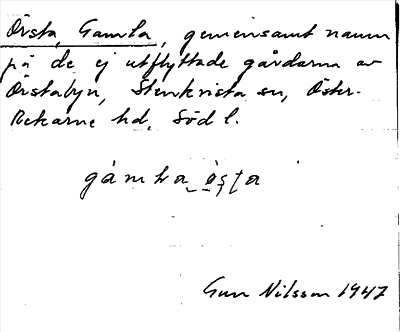 Örsta, Gamla, gemensamt namn
på de ej utflyttade gårdarna av
Örstabyn, Stenkvista sn, Öster-
Rekarne hd, Södl.
gámḷa ö̀ṣṭa
Gun Nilsson 1947